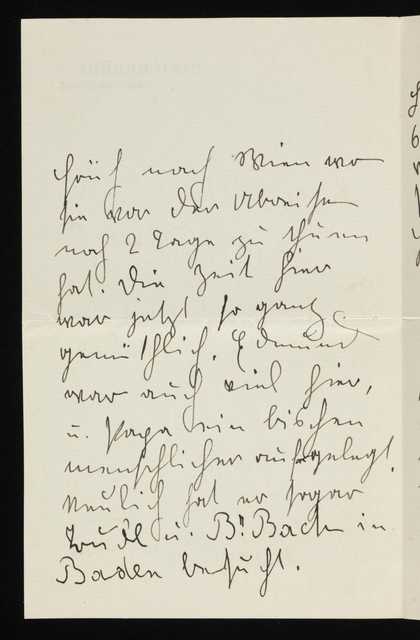 früh nach Wien wo
sie vor der Abreise
noch 2 Tage zu thuen
hat. Die Zeit hier
war jetzt so ganz
gemüthlich. Edmund
war auch viel hier,
u. Papa ein bischen
menschlicher aufgelegt.
Neulich hat er sogar
u. Bn. Bach in
Baden besucht.